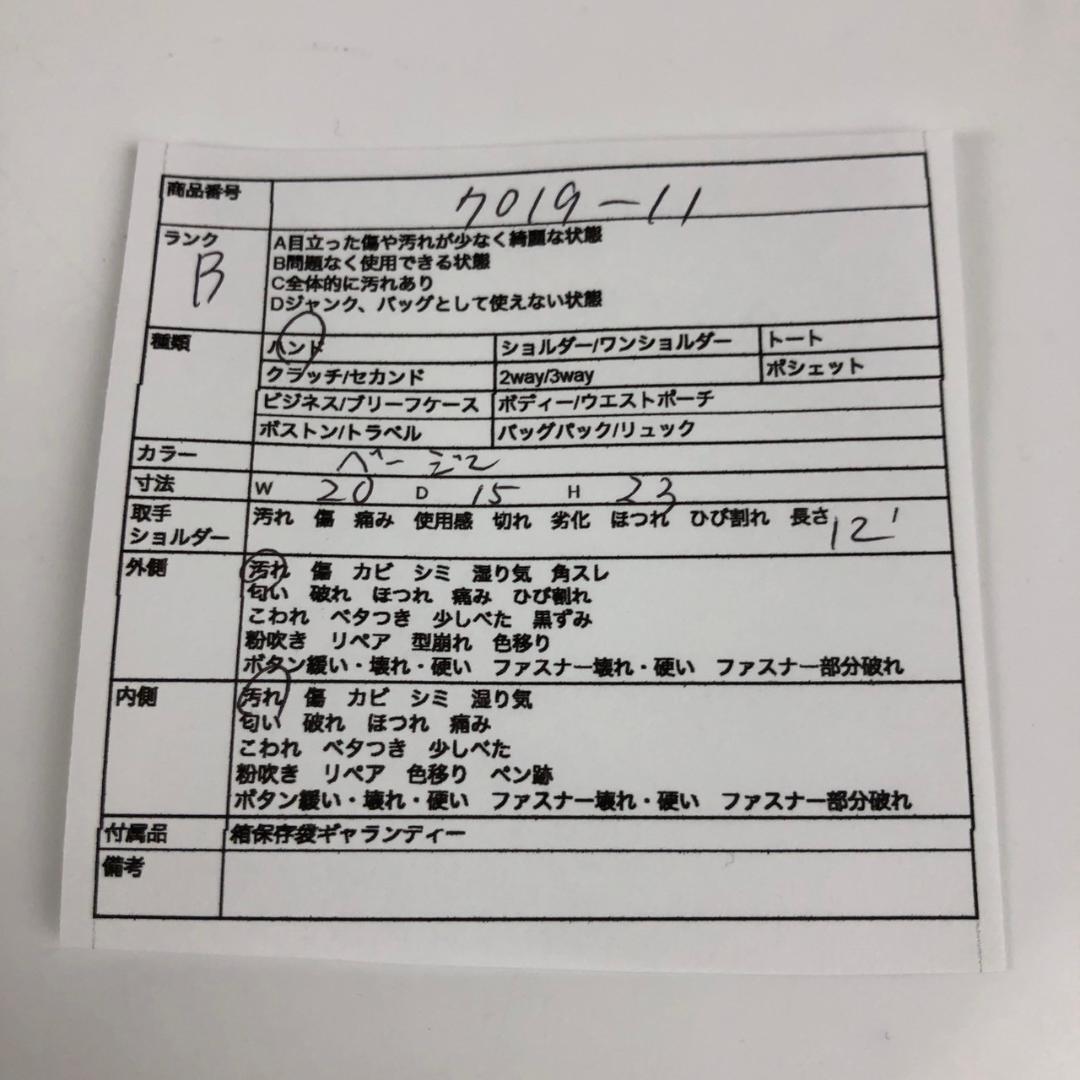 商品番号 7019-11
ランク B
A目立った傷や汚れが少なく綺麗な状態
B問題なく使用できる状態
C全体的に汚れあり
Dジャンク、バッグとして使えない状態
種類 ハンド ショルダー/ワンショルダー トート
クラッチ/セカンド 2way/3way ポシェット
ビジネス/ブリーフケース ボディー/ウエストポーチ
ボストン/トラベル バッグパック/リュック
カラー ベージュ
寸法 W 20 D 15 H 23
取手 汚れ 傷 痛み 使用感 切れ 劣化 ほつれ ひび割れ 長さ 12
ショルダー
外側 汚れ 傷 カビ シミ 湿り気 角スレ
匂い 破れ ほつれ 痛み ひび割れ
こわれ ベタつき 少しべた 黒ずみ
粉吹き リペア 型崩れ 色移り
ボタン緩い・壊れ・硬い ファスナー壊れ・硬い ファスナー部分破れ
内側 汚れ 傷 カビ シミ 湿り気
匂い 破れ ほつれ 痛み
こわれ ベタつき 少しべた
粉吹き リペア 色移り ペン跡
ボタン緩い・壊れ・硬い ファスナー壊れ・硬い ファスナー部分破れ
付属品 箱保存袋ギャランティー
備考